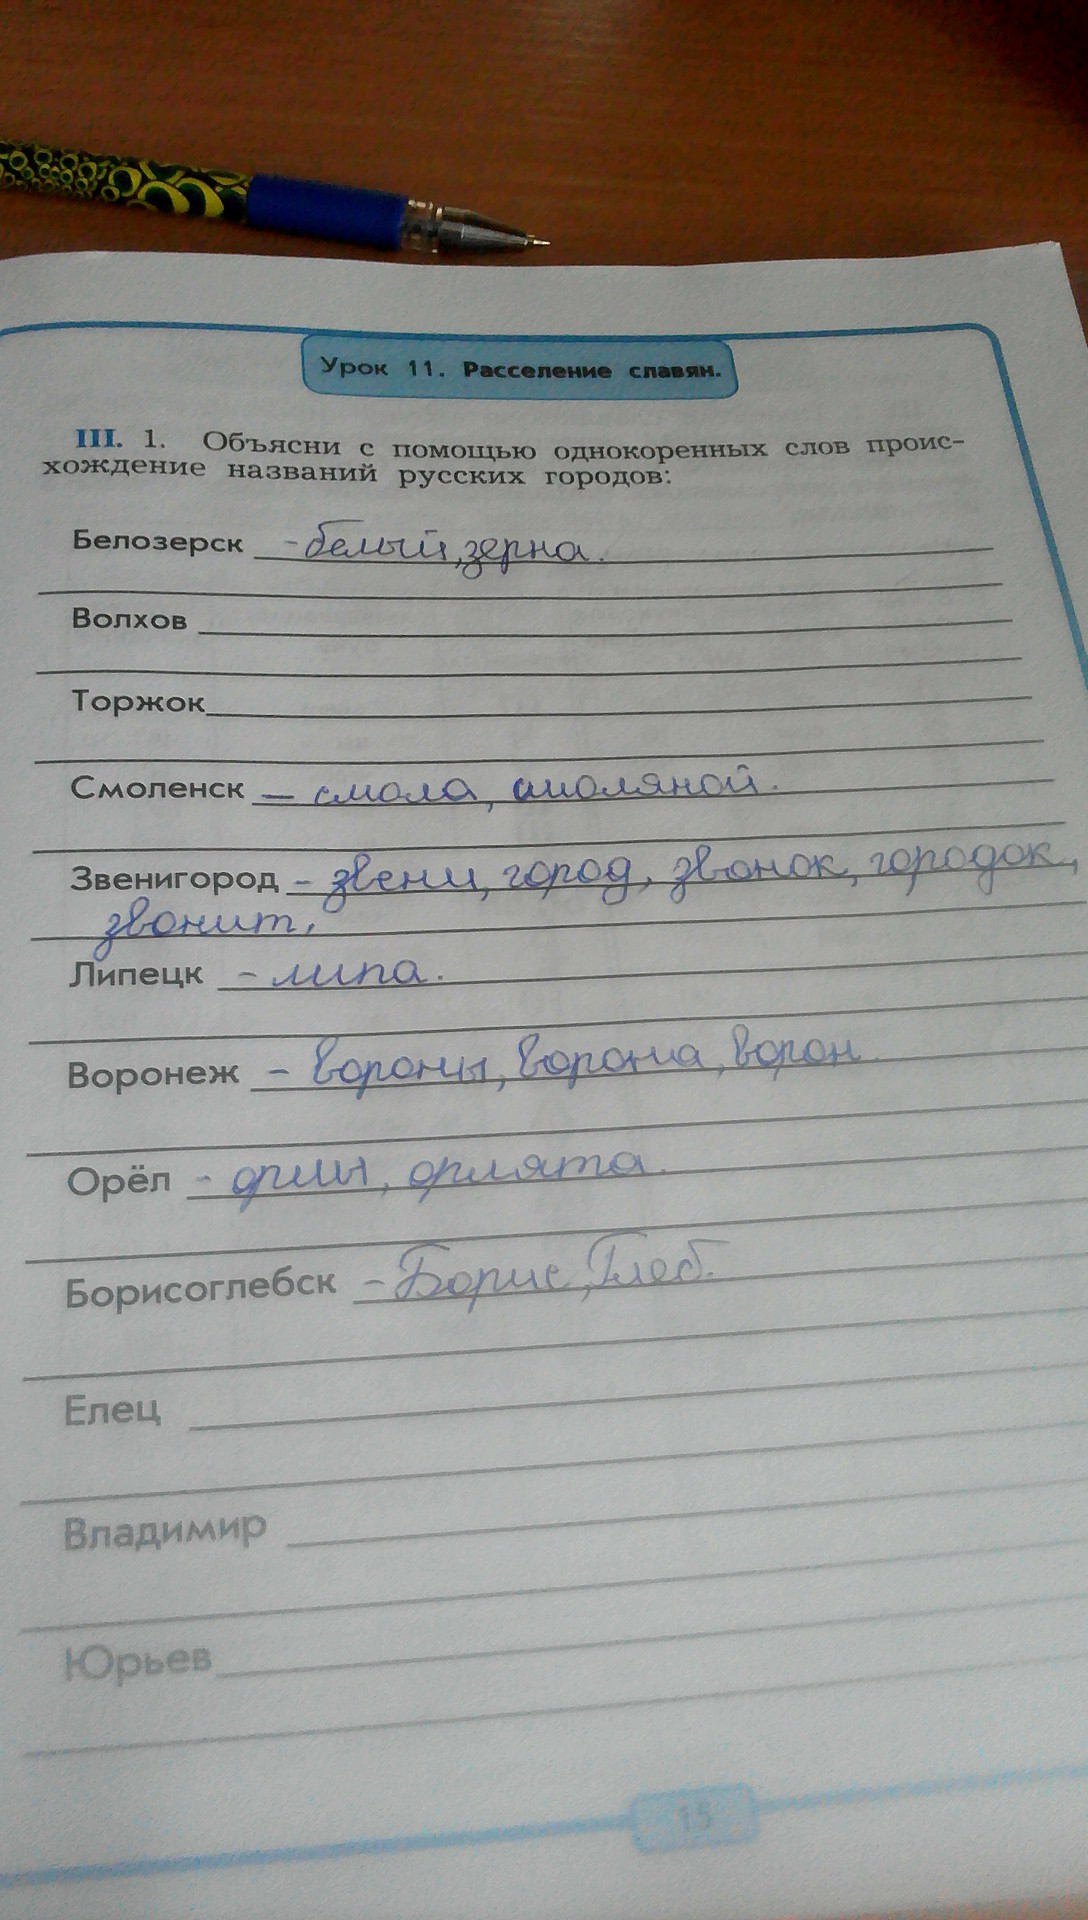 Урок 11. Расселение славян.
III. 1. Объясни с помощью однокоренных слов проис-
хождение названий русских городов:
Белозерск - белый, зерна.
Волхов
Торжок
Смоленск — смола, смоляной.
Звенигород - звени, город, звонок, городок,
звонит.
Липецк - липа.
Воронеж - вороны, ворона, ворон.
Орёл - орлы, орлята.
Борисоглебск - Борис, Глеб.
Елец
Владимир
Юрьев
15